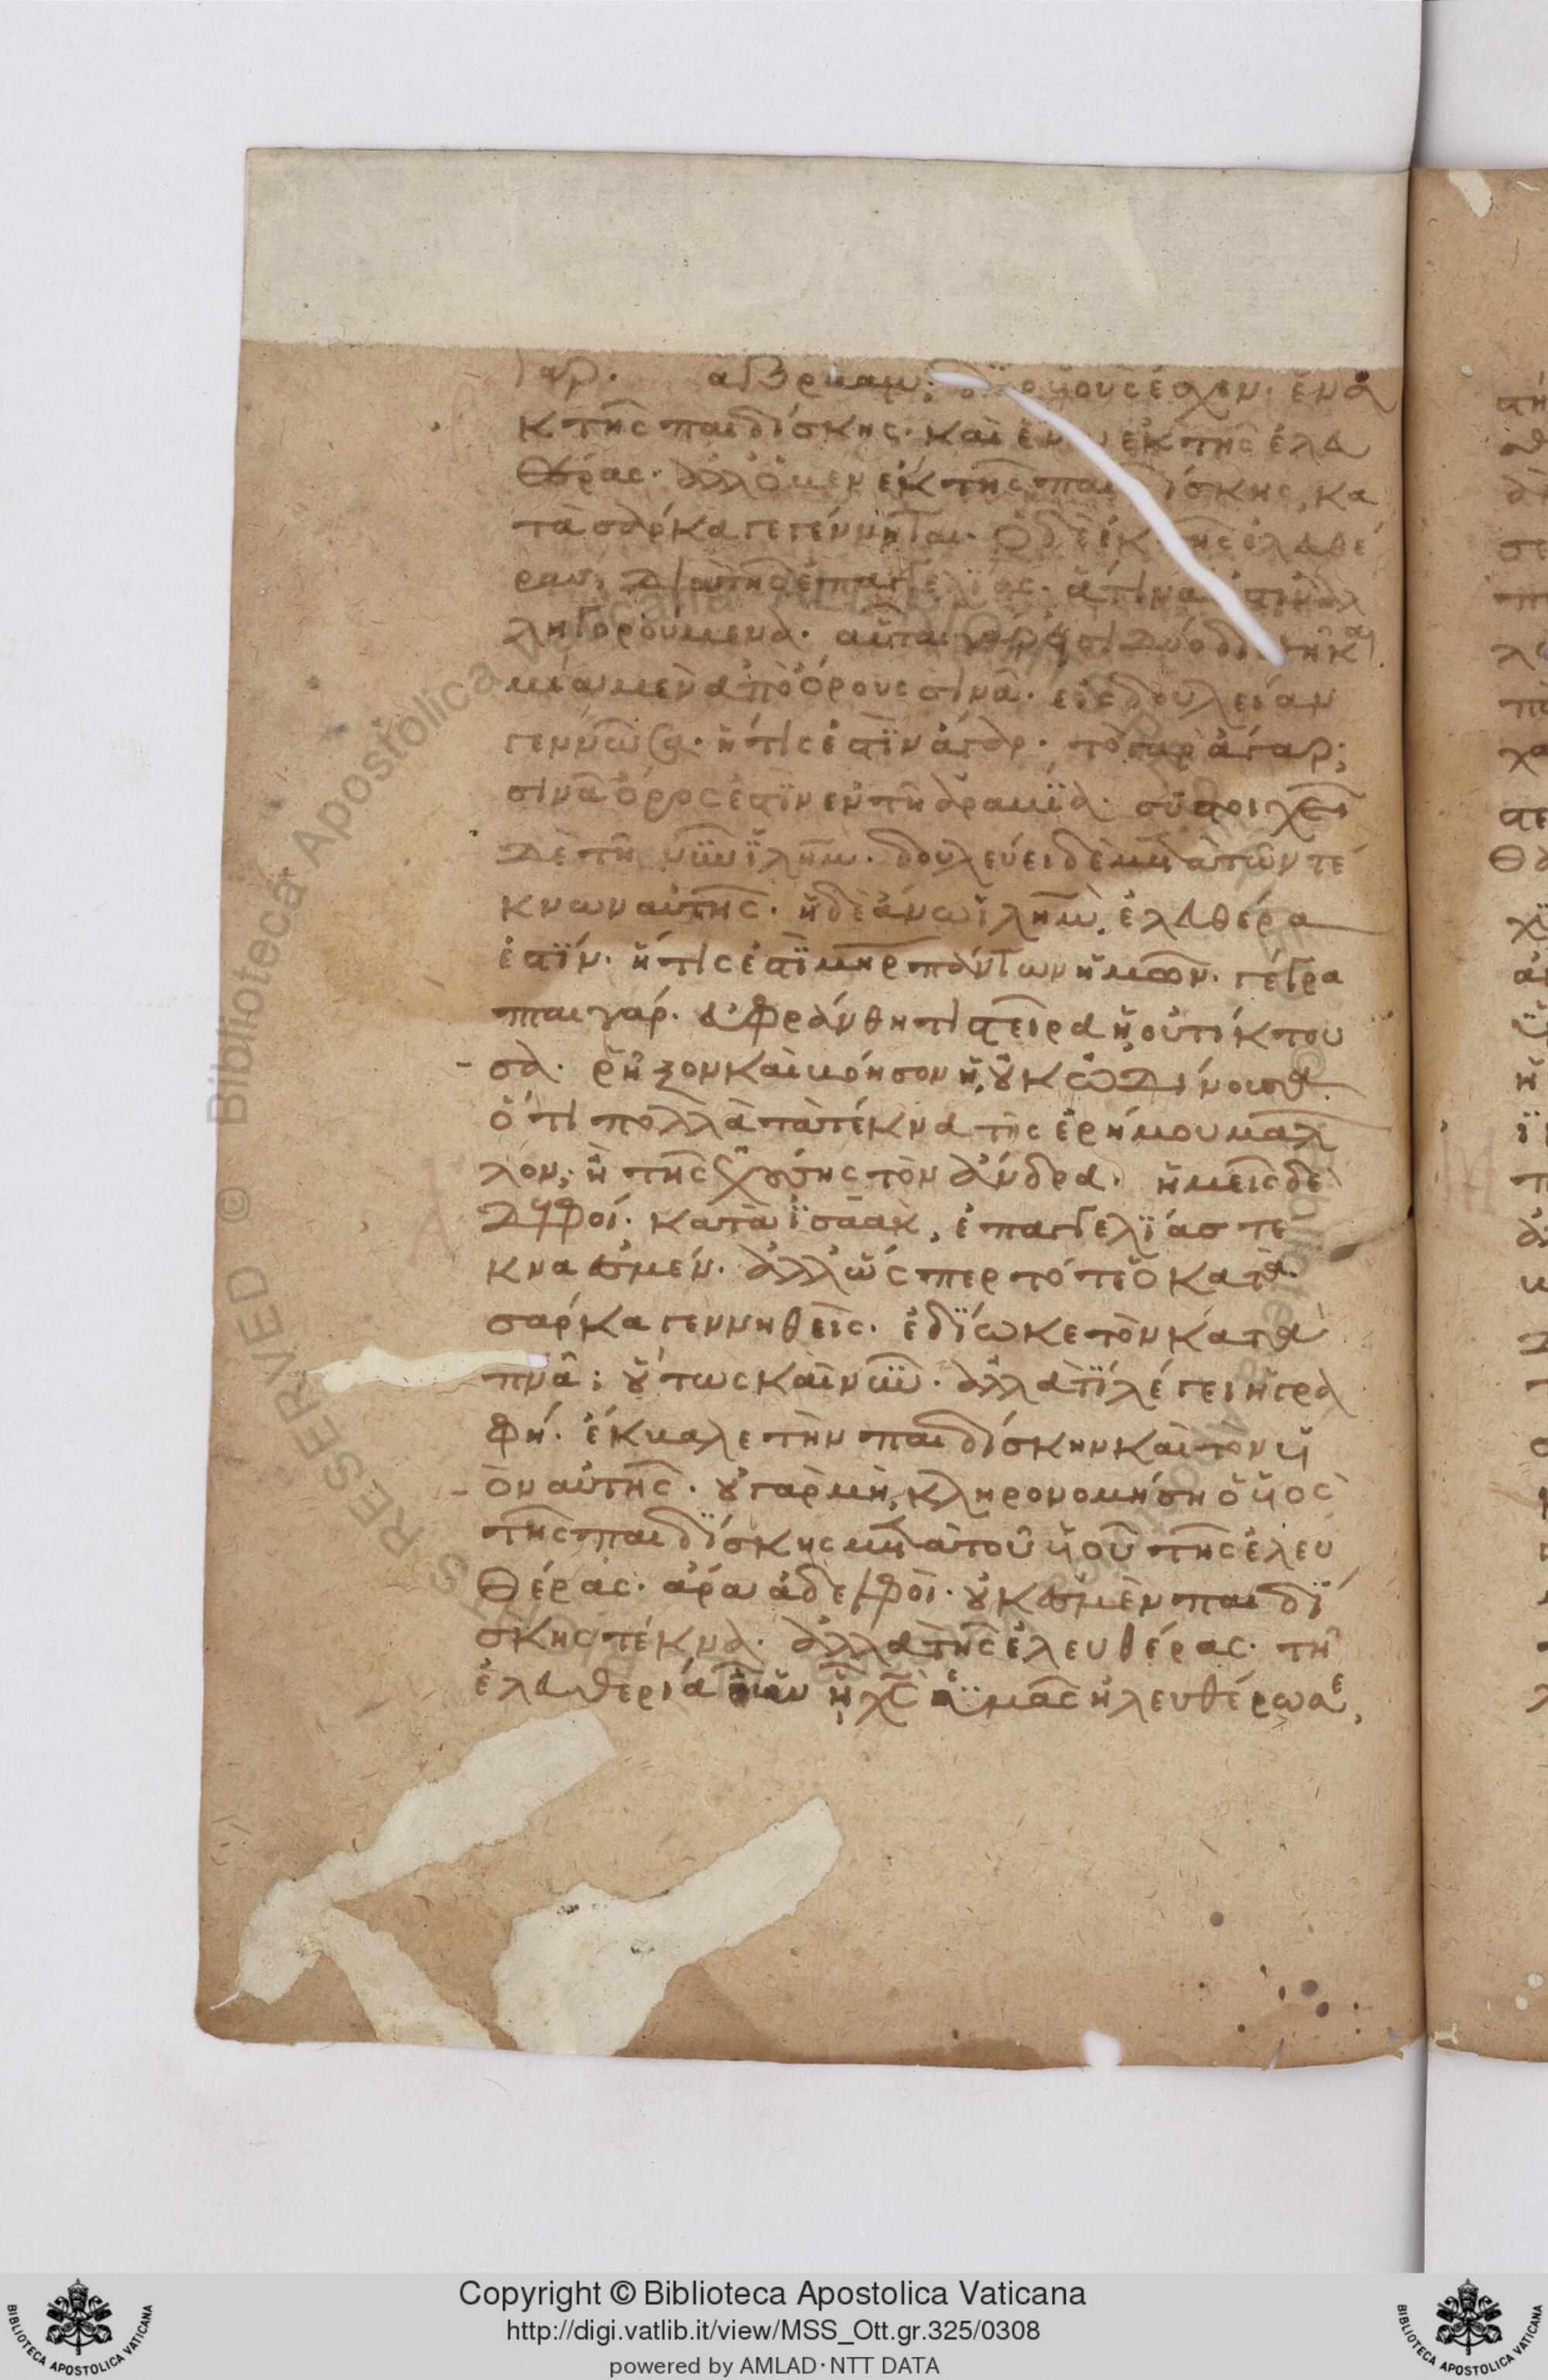 γαρ. ἀβρααμ; δύο υἱοὺς ἔσχεν. ἕνα ἐ
κ τῆς παιδίσκης. καὶ ἕνα ἐκ τῆς ἐλευ
θέρας. ἀλλ ὁ μεν ἐκ τῆς παιδίσκης, κα
τὰ σάρκα γεγέννηται. Ὁ δὲ ἐκ τῆς ἐλευθέ
ρας, διὰ τῆς ἐπαγγελΐας. ἅτινα ἐστὶν ἀλ
ληγορούμενα. αὗται γάρ εἰσι δύο διαθῆκαι,
μία μὲν ἀπὸ ὄρους σινᾶ. εἰς δουλείαν
γεννῶσα. ἥτις ἐστῒν ἄγαρ. τὸ γαρ ἄγαρ;
σινᾶ ὄρος ἐστῒν ἐν τῆ ἀραμΐα. συστοιχεῖ
δὲ τῆ νῦν ϊλημ. δουλεύει δὲ μετὰ τῶν τέ
κνων αὐτῆς. ἡ δὲ ἄνω ϊλημ, ἐλευθέρα
ἐστΐν. ἥτις ἐστῒ μηρ πάντων ἡμῶν. γέγρα
πται γάρ. εὐφράνθητι στεῖρα ἡ οὐ τίκτου
σα. ρῆξον καὶ βόησον ἡ οὐκ ὠδίνουσα.
ὅτι πολλὰ τὰ τέκνα τῆς ἐρήμου μαλ
λον, ἢ τῆς ἐχούσης τὸν ἄνδρα. ἡμεῖς δὲ
ἀδελφοί. κατὰ ϊσαὰκ, ἐπαγγελΐας τέ
κνα ἐσμέν. ἀλλ ὥσπερ τότε ὁ κατὰ
σάρκα γεννηθεὶς. ἐδΐωκε τὸν κατὰ
πνα; οὕτως καὶ νῦν. ἀλλὰ τΐ λέγει ἡ γρα
φή. ἔκβαλε τὴν παιδίσκην καὶ τὸν υἱ
ὸν αὐτῆς. οὐ γὰρ μὴ κληρονομήση ὁ υἱὸς
τῆς παιδΐσκης μετὰ τοῦ υἱοῦ τῆς ἐλευ
θέρας. ἄρα ἀδελφοὶ. οὐκ ἐσμὲν παιδΐ
σκης τέκνα. ἀλλὰ τῆς ἐλευθέρας. τῆ
ἐλευθερία οὖν ἧ χς ἡμᾶς ἠλευθέρωσε,
Copyright © Biblioteca Apostolica Vaticana
http://digi.vatlib.it/view/MSS_Ott.gr.325/0308
powered by AMLAD·NTT DATA